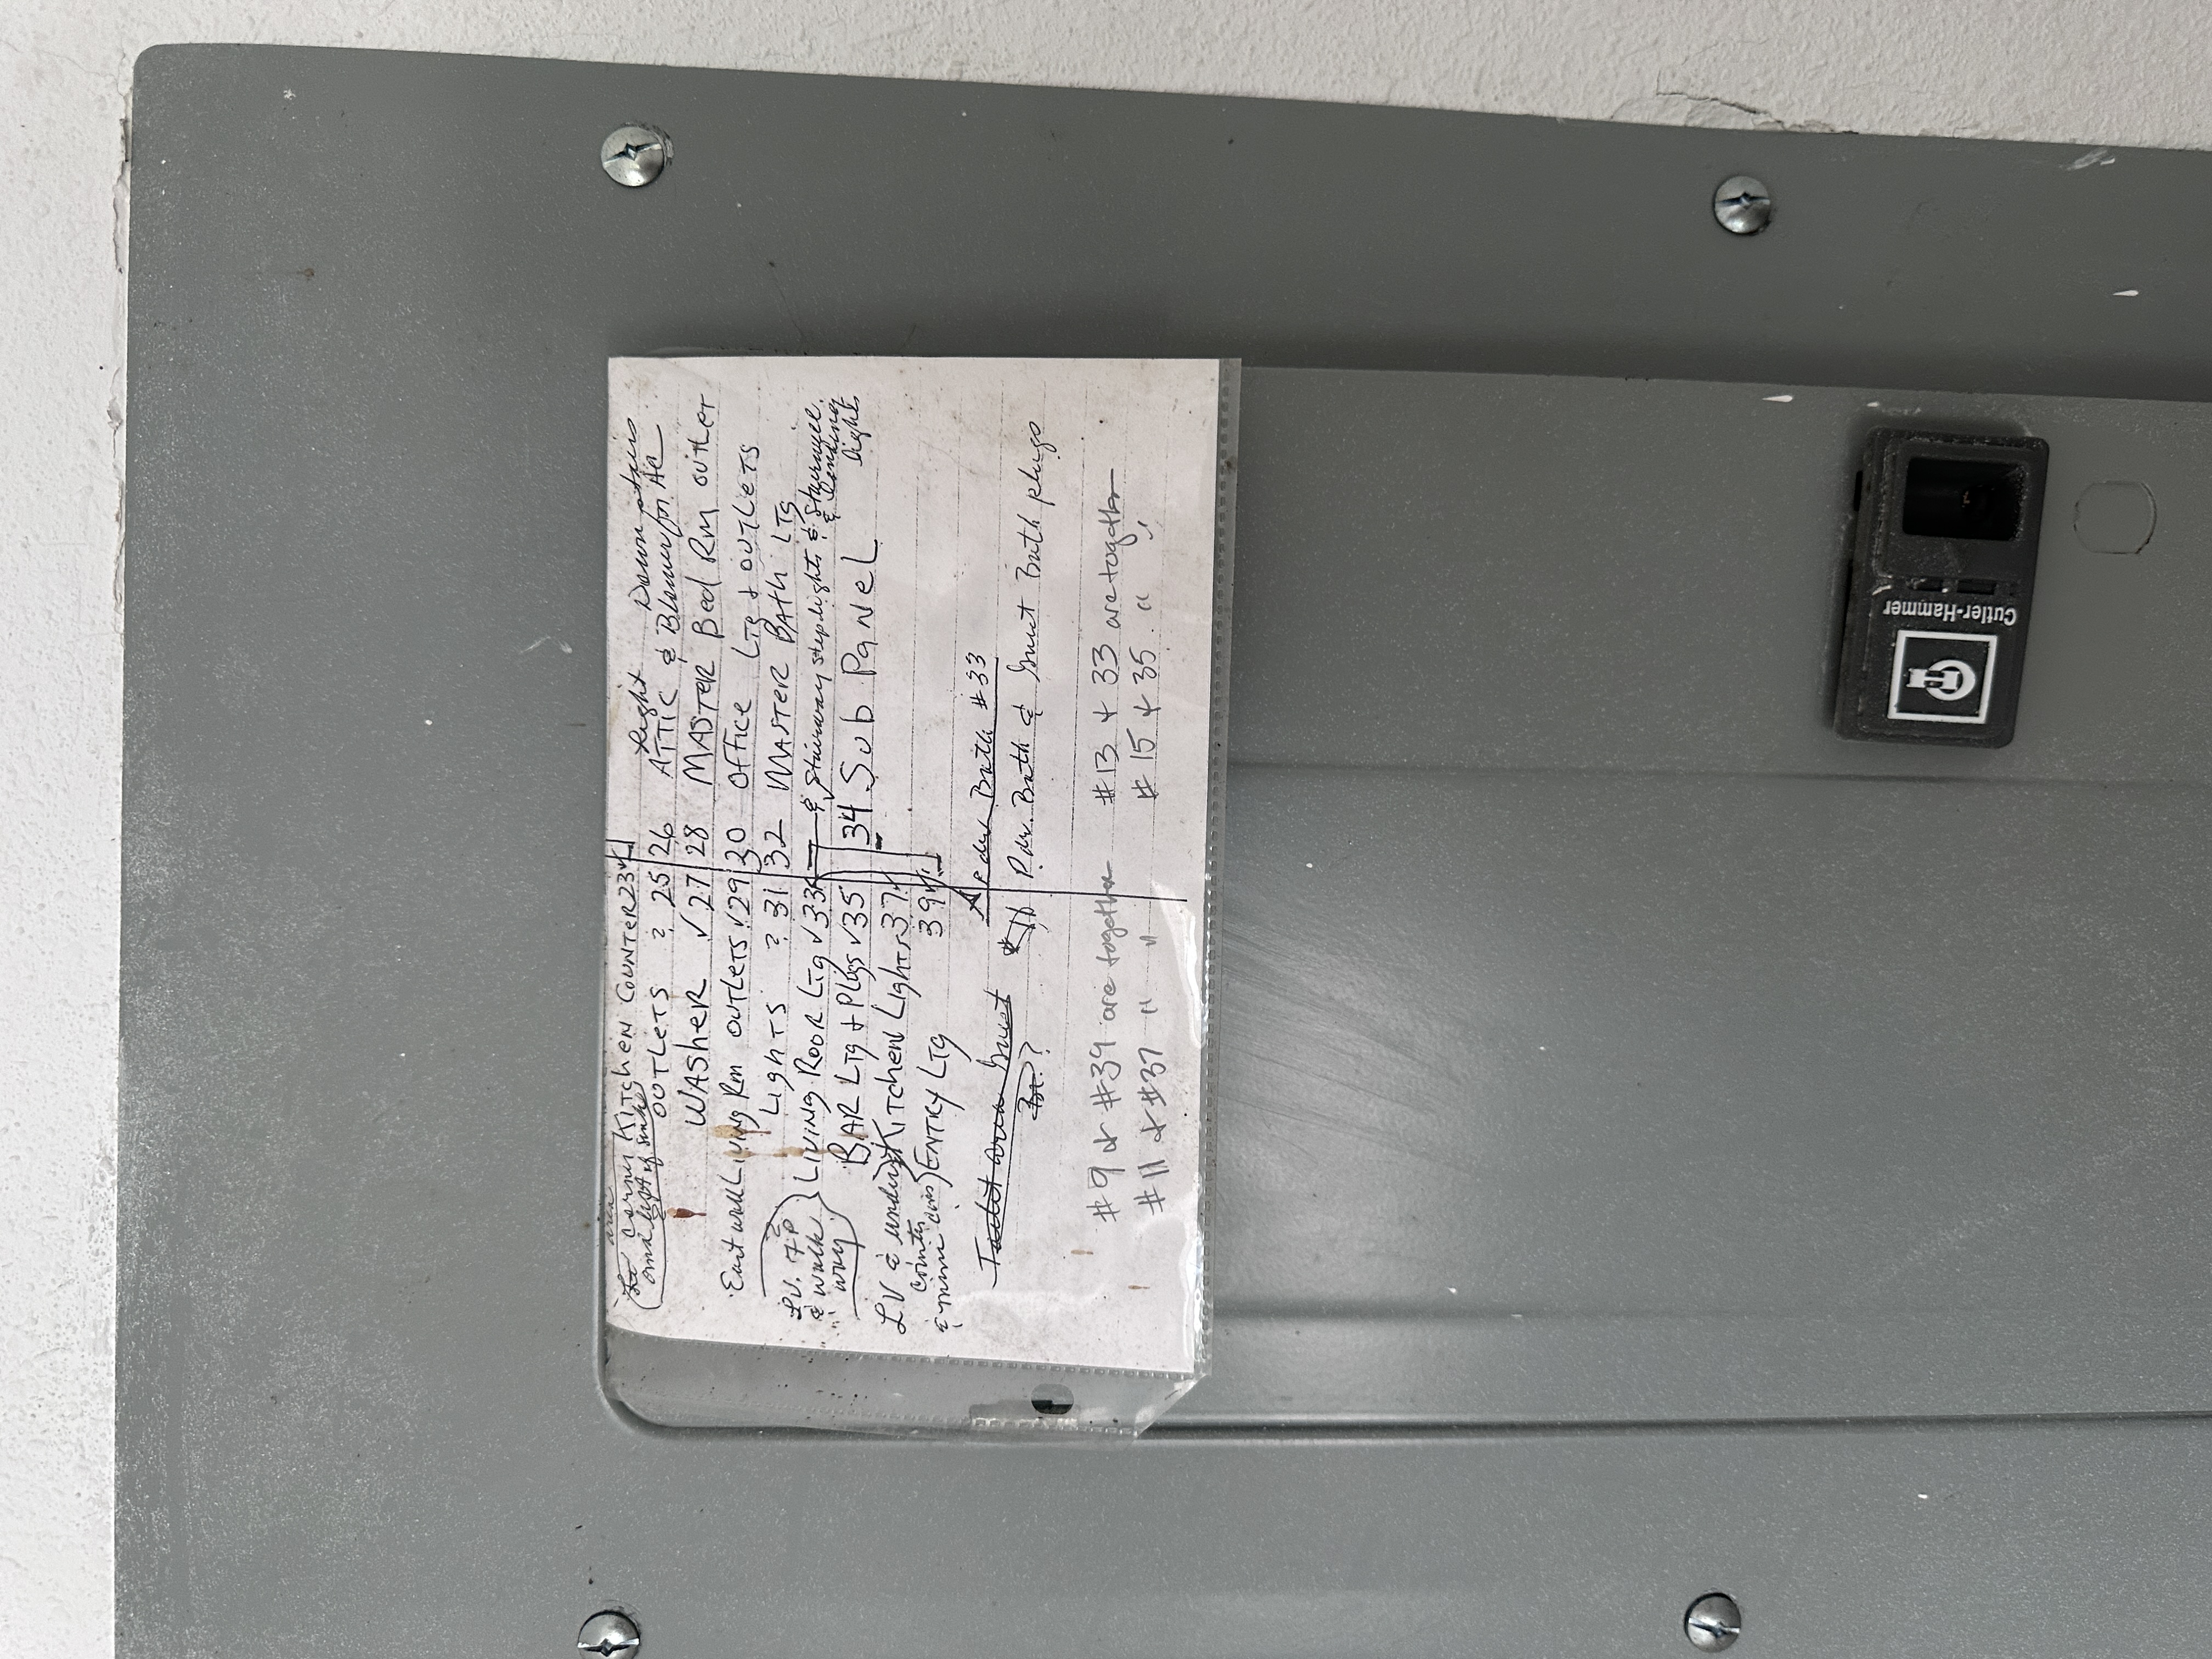 area
corner KITCHEN COUNTER 23
and left of sink
OUTLETS ? 25 | 26 ATTIC & Blower for AC
light Downstairs
WASHER √ 27 | 28 MASTER Bed Rm outlet
East wall LIVING Rm OUTLETS √ 29 | 30 OFFICE LTG + OUTLETS
LIGHTS ? 31 | 32 MASTER BATH LTG
LV. 
& walk
way
LIVING ROOR LTG √ 33 & Stairway step lights & Stairwell
& Landing
light
BAR LTG + Plugs √ 35 34 Sub PANEL
LV & under KITCHEN LIGHTS 37
counter
ENTRY LTG 39
Toilet area Guest
?
Pdr Bath #33
Pdr. Bath & Guest Bath plugs
#9 & #39 are together #13 + 33 are together
#11 & #37 " " #15 + 35 " "
Cutler-Hammer
CH